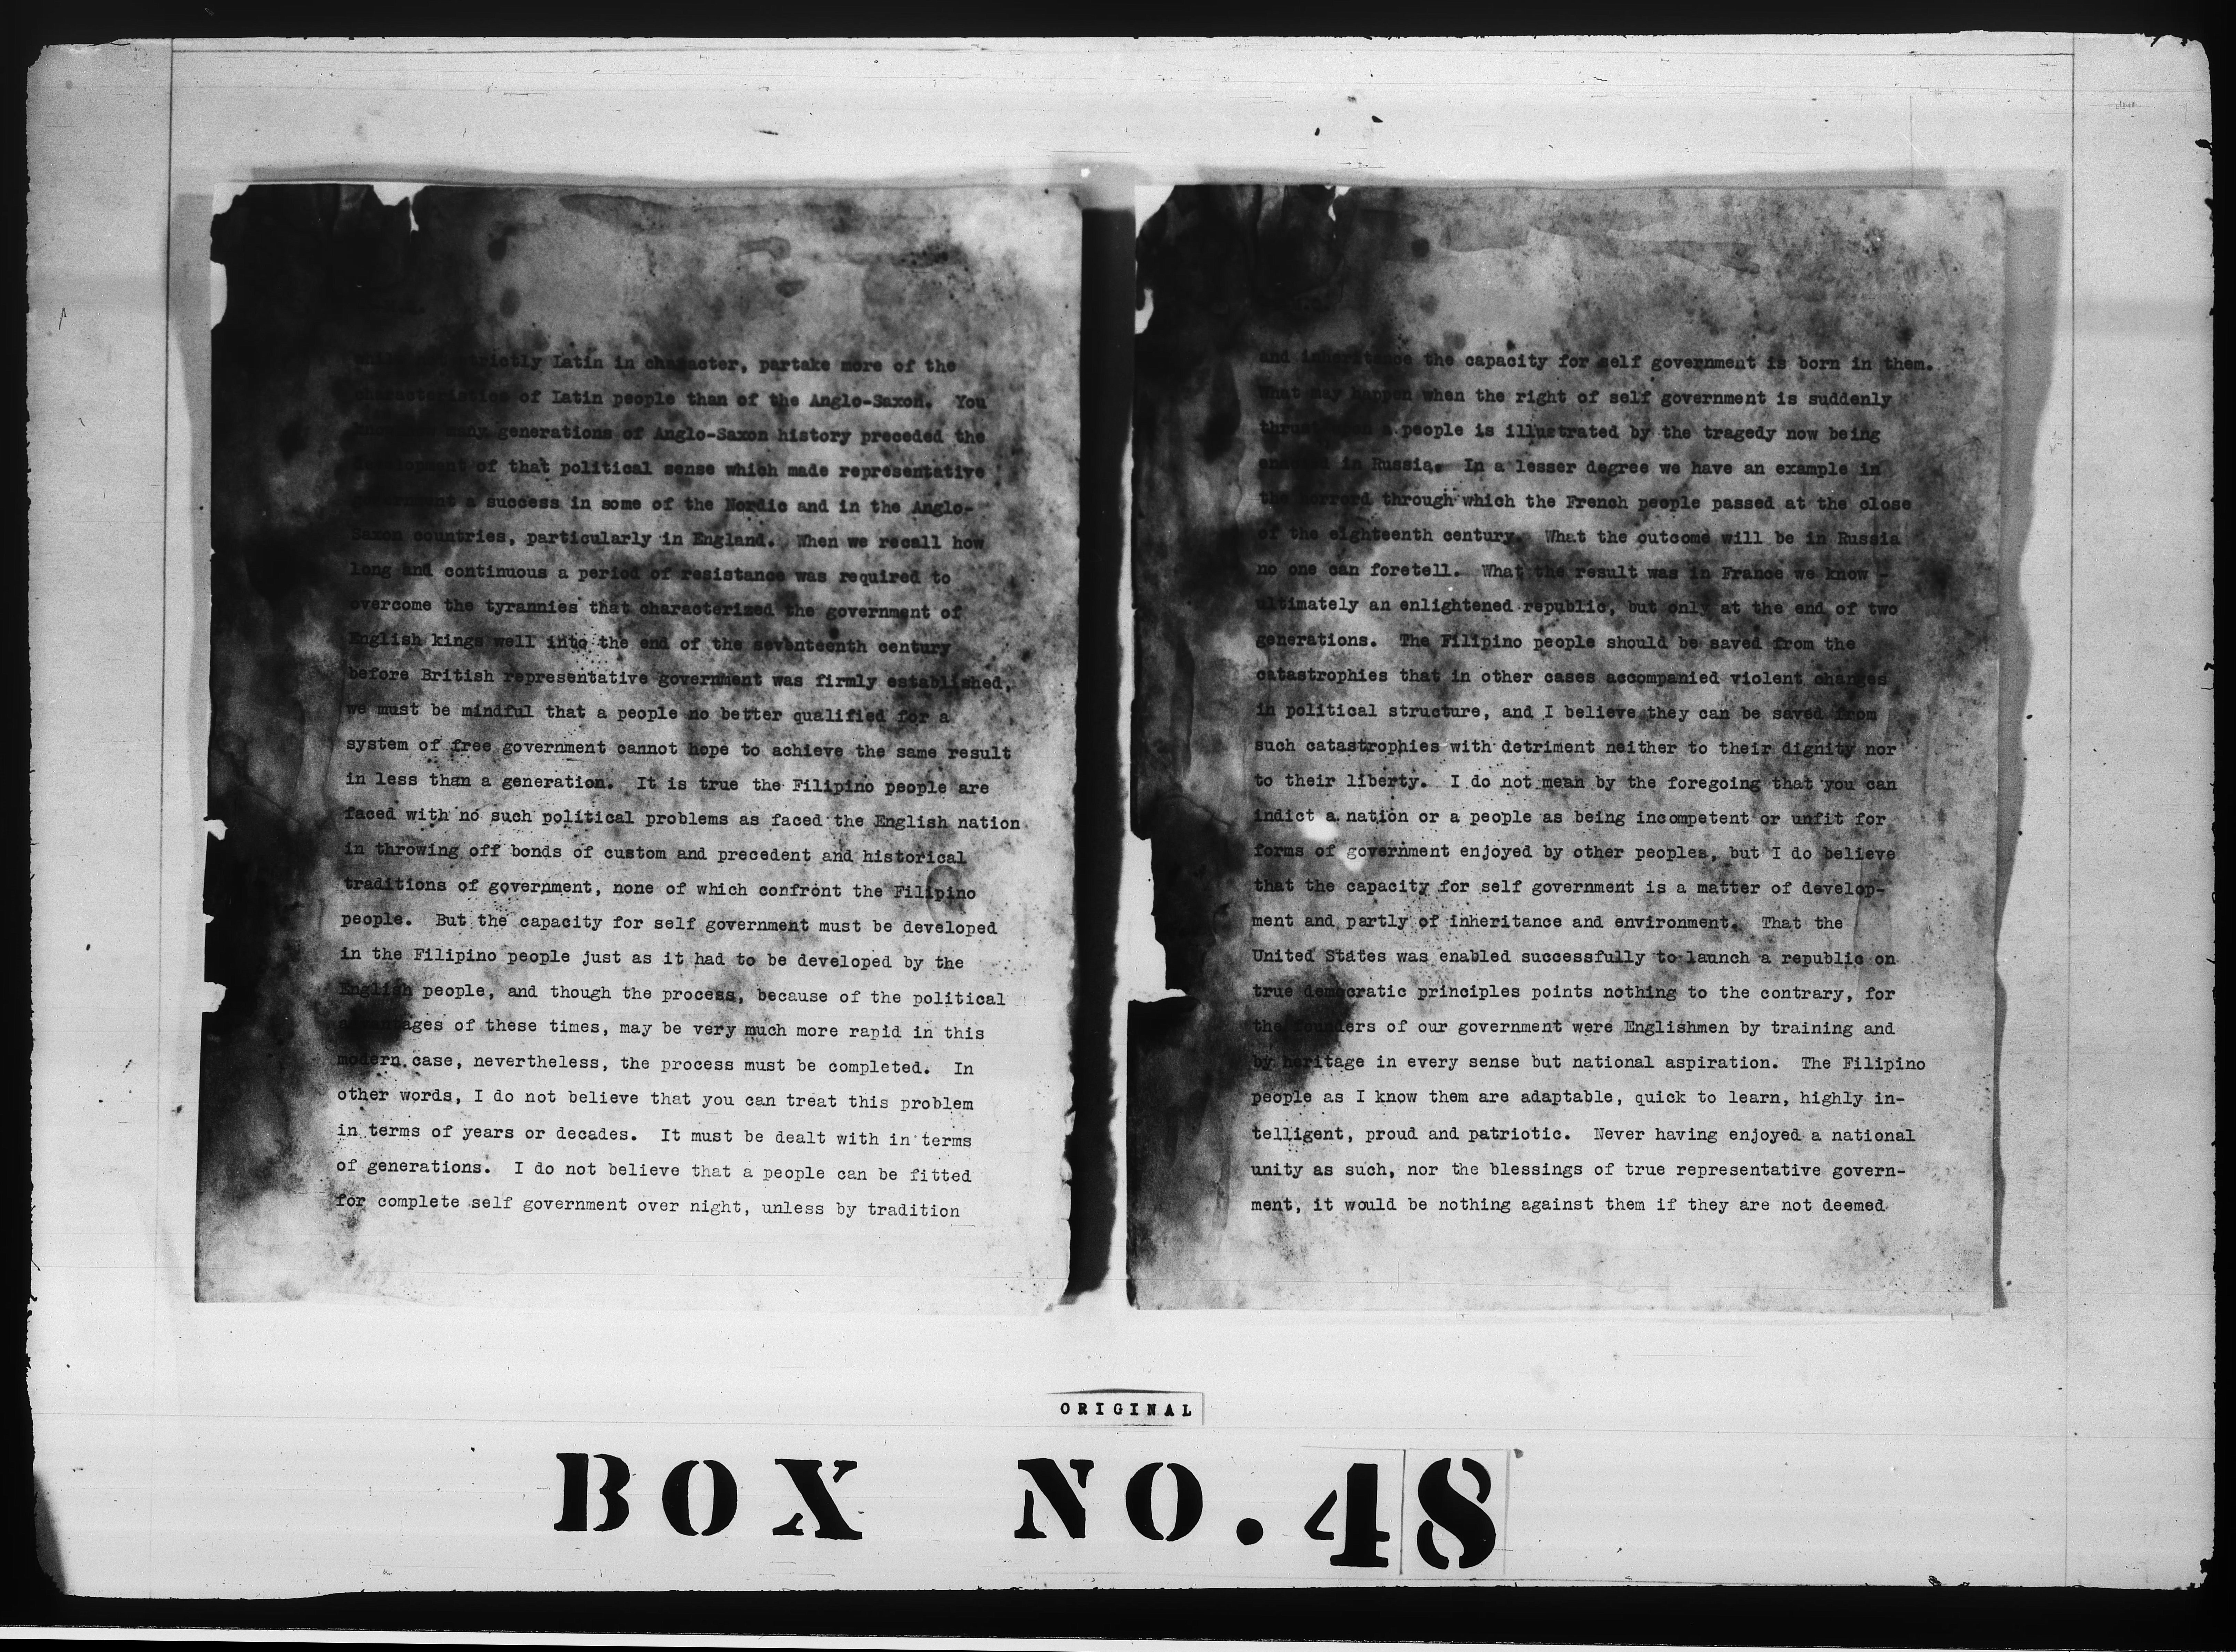 while not strictly Latin in character, partake more of the
characteristics of Latin people than of the Anglo-Saxon. You
many generations of Anglo-Saxon history preceded the
development of that political sense which made representative
government a success in some of the Nordic and in the Anglo-
Saxon countries, particularly in England. When we recall how
long and continuous a period of resistance was required to
overcome the tyrannies that characterized the government of
English kings well into the end of the seventeenth century
before British representative government was firmly established,
we must be mindful that a people no better qualified for a
system of free government cannot hope to achieve the same result
in less than a generation. It is true the Filipino people are
faced with no such political problems as faced the English nation
in throwing off bonds of custom and precedent and historical
traditions of government, none of which confront the Filipino
people. But the capacity for self government must be developed
in the Filipino people just as it had to be developed by the
English people, and though the process, because of the political
advantages of these times, may be very much more rapid in this
modern case, nevertheless, the process must be completed. In
other words, I do not believe that you can treat this problem
in terms of years or decades. It must be dealt with in terms
of generations. I do not believe that a people can be fitted
for complete self government over night, unless by tradition
and inheritance the capacity for self government is born in them.
What may happen when the right of self government is suddenly
thrust upon a people is illustrated by the tragedy now being
enacted in Russia. In a lesser degree we have an example in
the horrord through which the French people passed at the close
of the eighteenth century. What the outcome will be in Russia
no one can foretell. What the result was in France we know -
ultimately an enlightened republic, but only at the end of two
generations. The Filipino people should be saved from the
catastrophies that in other cases accompanied violent changes
in political structure, and I believe they can be saved from
such catastrophies with detriment neither to their dignity nor
to their liberty. I do not mean by the foregoing that you can
indict a nation or a people as being incompetent or unfit for
forms of government enjoyed by other peoples, but I do believe
that the capacity for self government is a matter of develop-
ment and partly of inheritance and environment. That the
United States was enabled successfully to launch a republic on
true democratic principles points nothing to the contrary, for
the founders of our government were Englishmen by training and
by heritage in every sense but national aspiration. The Filipino
people as I know them are adaptable, quick to learn, highly in-
telligent, proud and patriotic. Never having enjoyed a national
unity as such, nor the blessings of true representative govern-
ment, it would be nothing against them if they are not deemed
ORIGINAL
BOX NO. 48